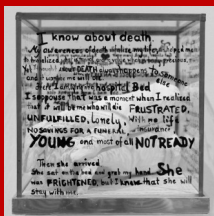 I know about death.
My awareness of death
to
Yet DEATH always happens To someone else
and it
There I am in a Hospital Bed
I suppose that was a moment when I realized
that it will be me who will die FRUSTRATED,
UNFULFILLED, Lonely, With no life
NO SAVINGS FOR A FUNERAL, insurance
YOUNG and most of all NOT READY
Then she arrived
She sat on the bed and grab my hand She
was FRIGHTENED but I knew that she will
stay with me.